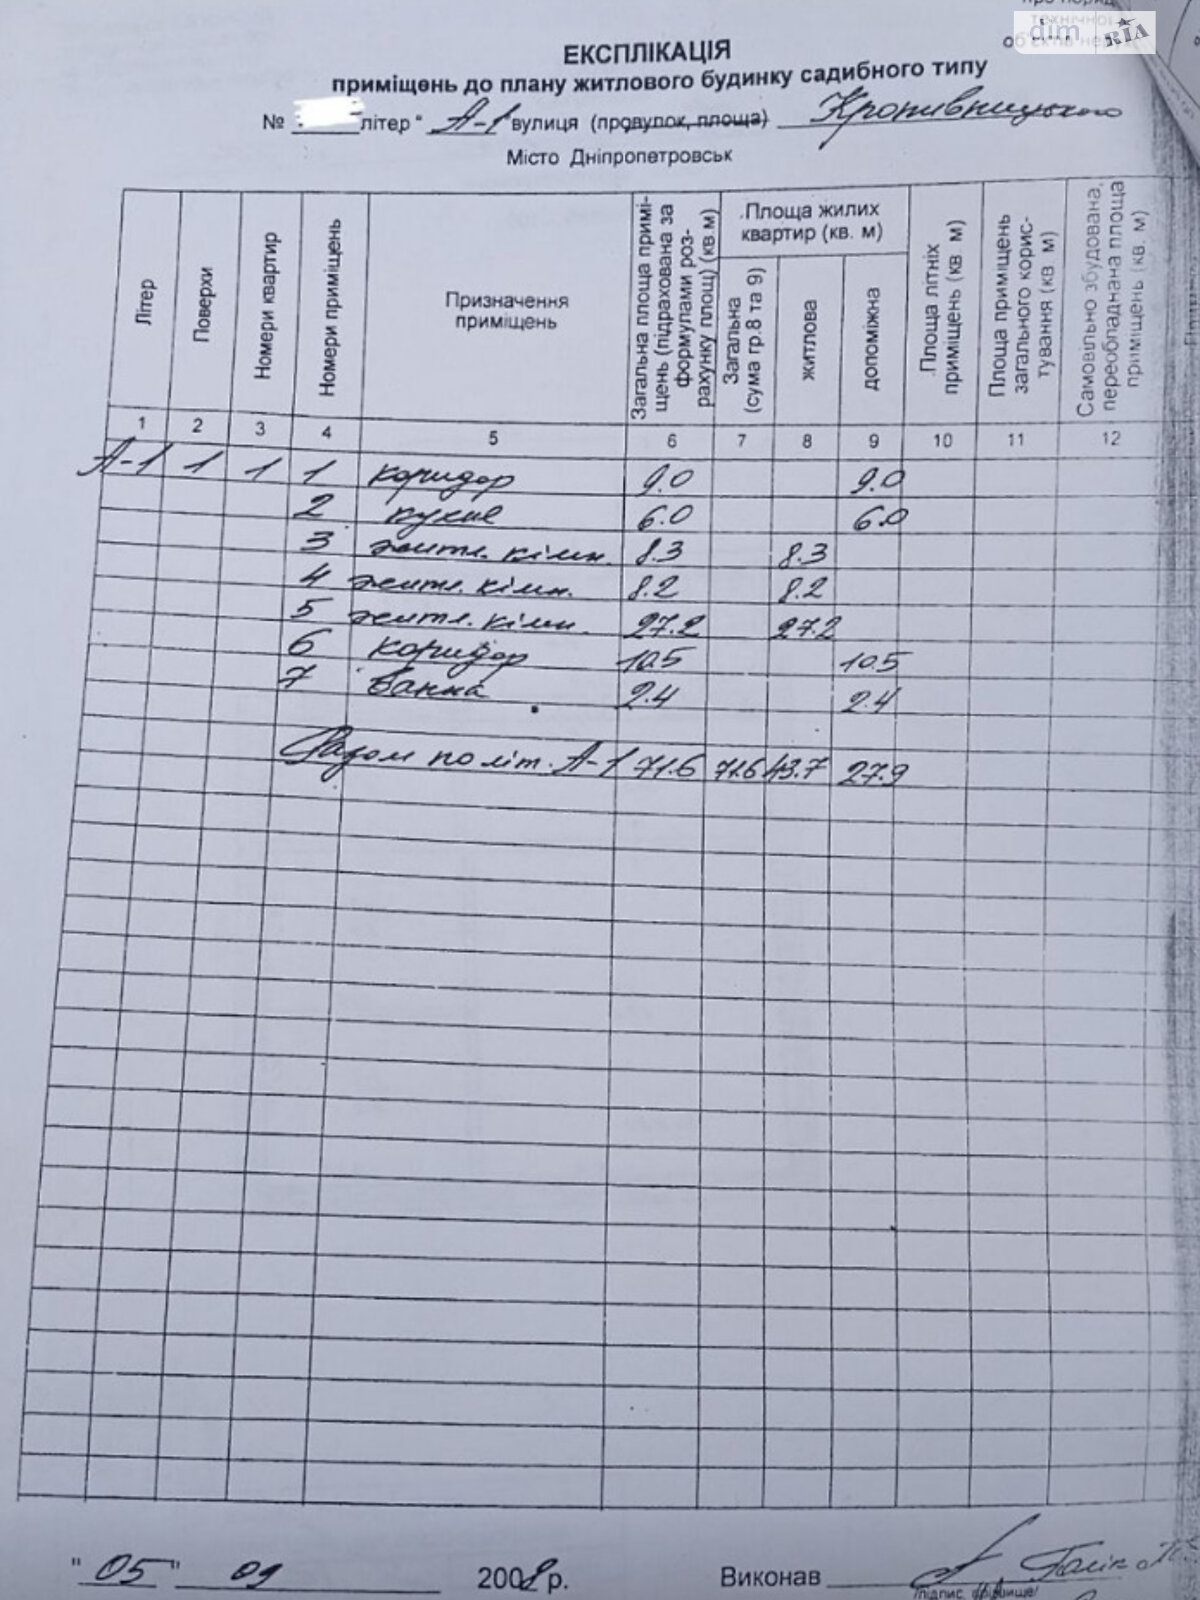 технічно
dim RIA
ЕКСПЛІКАЦІЯ
приміщень до плану житлового будинку садибного типу
№ літер " А-1 вулиця (провулок, площа) Кропивницького
Місто Дніпропетровськ
Літер
Поверхи
Номери квартир
Номери приміщень
Призначення
приміщень
Загальна площа примі-
щень (підрахована за
формулами роз-
рахунку площ) (кв.м)
Площа жилих
квартир (кв. м)
Загальна
(сума гр.8 та 9)
житлова
допоміжна
Площа літніх
приміщень (кв. м)
Площа приміщень
загального корис-
тування (кв. м)
Самовільно збудована,
переобладнана площа
приміщень (кв. м)
1 2 3 4 5 6 7 8 9 10 11 12
А-1 1 1 1 коридор 9.0 9.0
2 кухня 6.0 6.0
3 житл. кімн. 8.3 8.3
4 житл. кімн. 8.2 8.2
5 житл. кімн. 27.2 27.2
6 коридор 10.5 10.5
7 Ванна 2.4 2.4
Разом по літ. А-1 71.6 71.6 43.7 27.9
"05" 09 2008 р. Виконав
/підпис, прізвище/